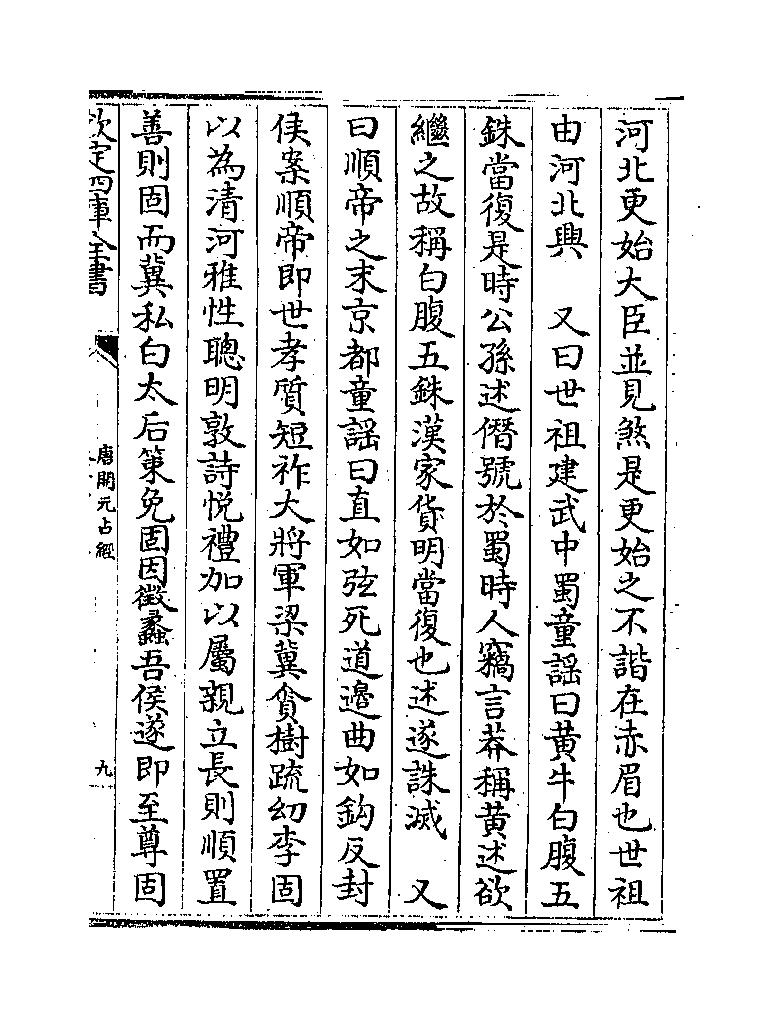 河北更始大臣並見煞是更始之不諧在赤眉也世祖
由河北興　又曰世祖建武中蜀童謡曰黄牛白腹五
銖當復是時公孫述僭號於蜀時人竊言莽稱黄述欲
繼之故稱白腹五銖漢家貨明當復也述遂誅滅　又
曰順帝之末京都童謡曰直如弦死道邉曲如鈎反封
侯案順帝即世孝質短祚大將軍梁冀貪樹疏幼李固
以為清河雅性聰明敦詩悦禮加以屬親立長則順置
善則固而冀私白太后策免固因徵蠡吾侯遂即至尊固
欽定四庫全書
唐開元占經
九